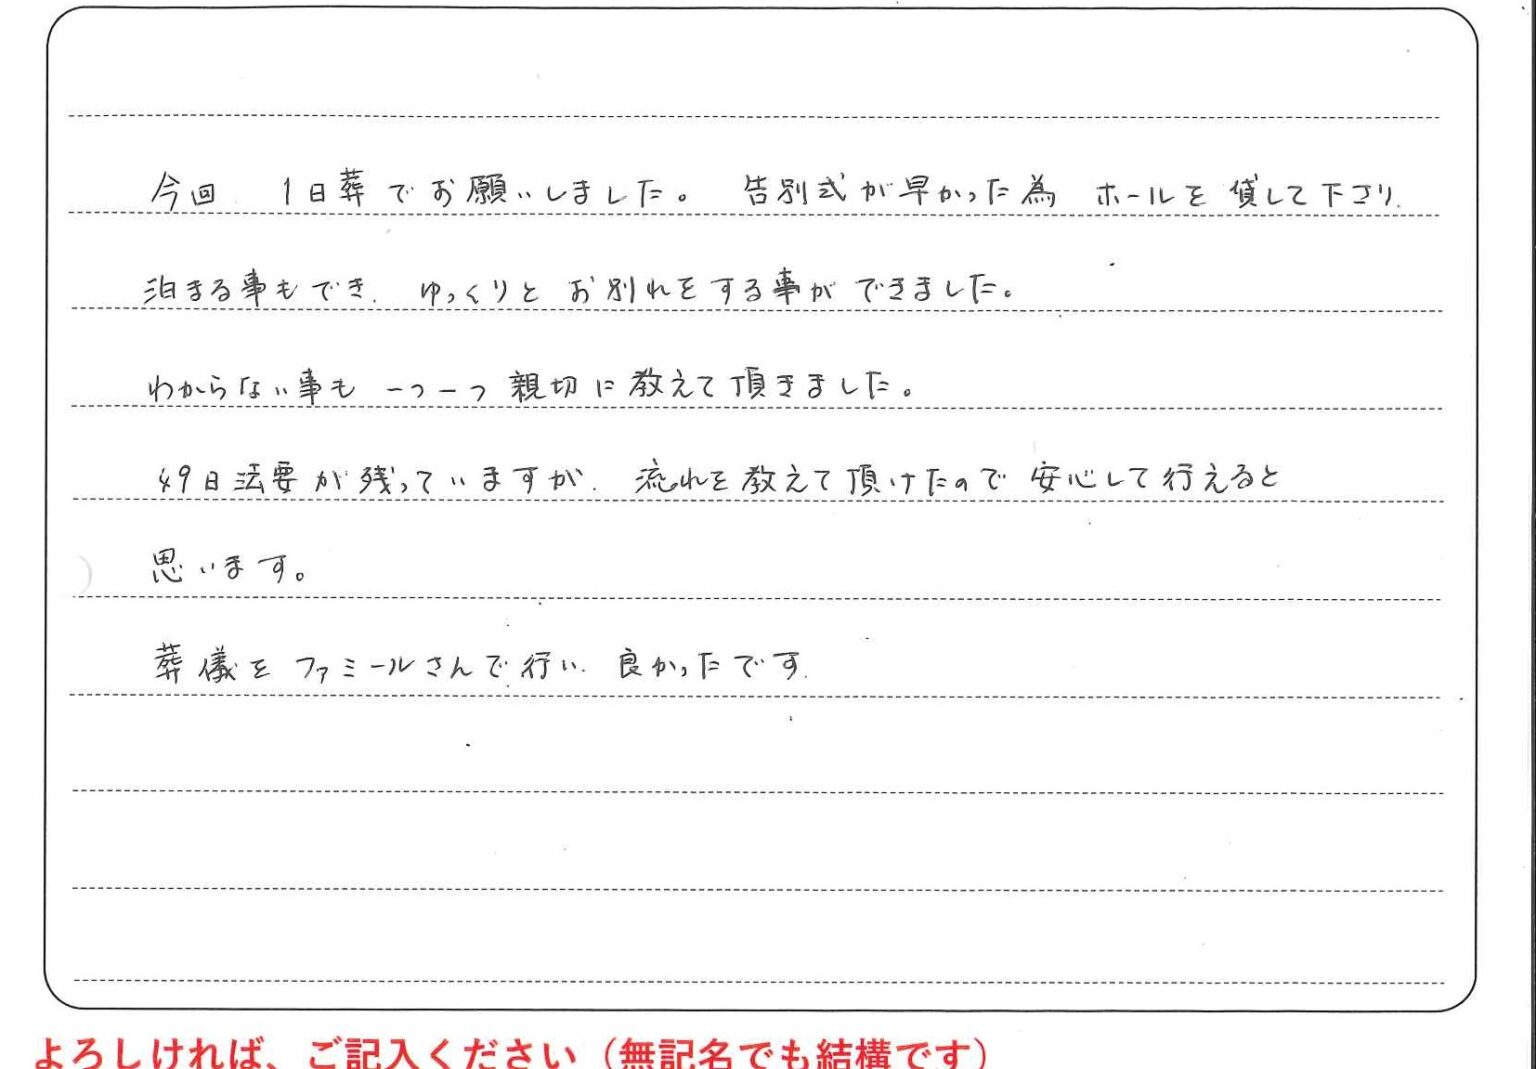 今回 1日葬でお願いしました。 告別式が早かった為 ホールを貸して下さり、
泊まる事もでき、ゆっくりと お別れをする事ができました。
わからない事も 一つ一つ 親切に教えて頂きました。
49日法要が残っていますが、流れを教えて頂けたので 安心して行えると
思います。
葬儀を ファミールさんで行い、良かったです.
よろしければ、ご記入ください（無記名でも結構です）